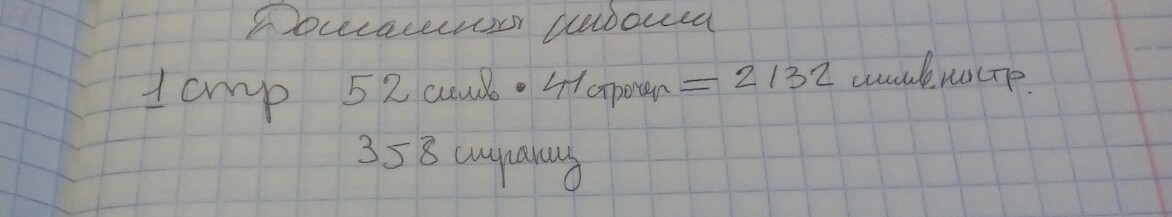 Домашняя работа
1 стр 52 симв • 41 строчер = 2132 симв. на стр.
358 страниц